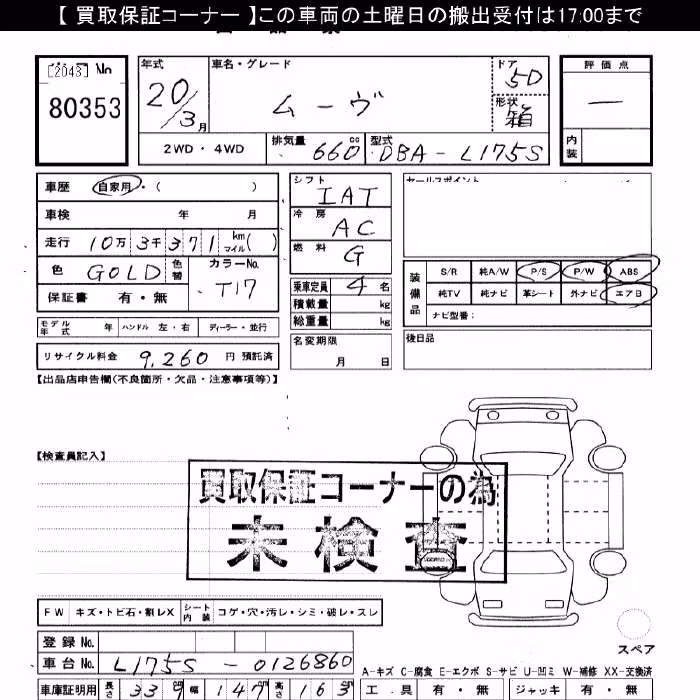 【 買取保証コーナー 】この車両の土曜日の搬出受付は17:00まで
[2043] No
80353
年式 20/3月
車名・グレード ムーヴ
ドア 5D
形状 箱
評価点 —
内装
2WD・4WD
排気量 660 cc
型式 DBA-L175S
車歴 自家用・( )
車検 年 月
走行 10万3千371 km マイル( )
色 GOLD 色替 カラーNo. T17
保証書 有・無
シフト IAT
冷房 AC
燃料 G
乗車定員 4 名
積載量 kg
総重量 kg
セールスポイント
装備品 S/R 純A/W P/S P/W ABS
純TV 純ナビ 革シート 外ナビ エアB
ナビ型番:
モデル年式 年 ハンドル 左・右 ディーラー・並行
リサイクル料金 9,260 円 預託済
名変期限 月 日
後日品
【出品店申告欄(不良箇所・欠品・注意事項等)】
【検査員記入】
買取保証コーナーの為
未検査
FW キズ・トビ石・割レX シート内装 コゲ・穴・汚レ・シミ・破レ・スレ
登録 No.
車台 No. L175S-0126860
スペア
A-キズ C-腐食 E-エクボ S-サビ U-凹ミ W-補修 XX-交換済
車庫証明用 長さ 339 幅 147 高さ 163
工具 有・無 ジャッキ 有・無